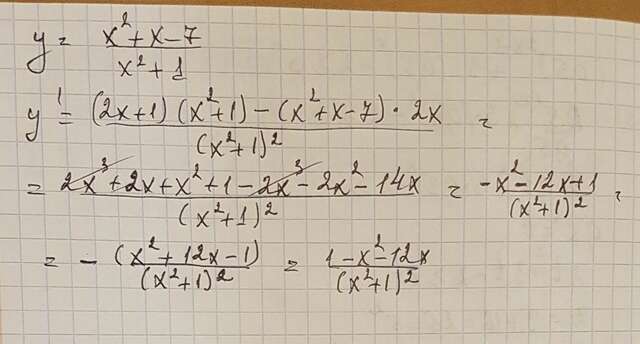 y = (x² + x - 7)/(x² + 1)
y' = ((2x+1)(x²+1) - (x²+x-7) · 2x)/((x²+1)²) =
= (2x³ + 2x + x² + 1 - 2x³ - 2x² - 14x)/((x²+1)²) = (-x² - 12x + 1)/((x²+1)²) =
= - (x² + 12x - 1)/((x²+1)²) = (1 - x² - 12x)/((x²+1)²)